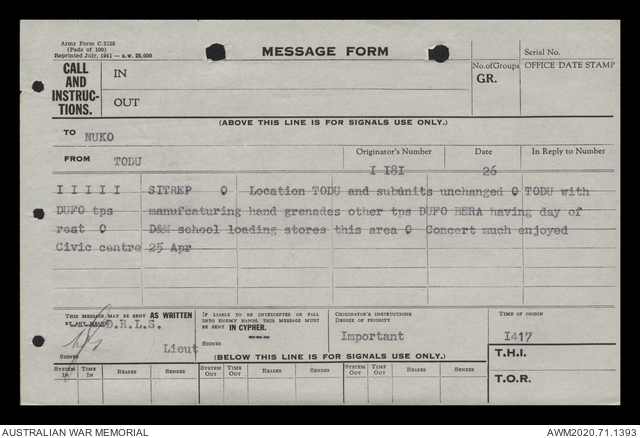 Army Form C.2128
(Pads of 100)
Reprinted July, 1941 — s.w. 25,000
MESSAGE FORM
Serial No.
CALL AND INSTRUC- TIONS.
IN
OUT
No. of Groups
GR.
OFFICE DATE STAMP
(ABOVE THIS LINE IS FOR SIGNALS USE ONLY.)
TO NUKO
FROM TODU
Originator's Number
I 181
Date
26
In Reply to Number
I I I I I SITREP O Location TODU and subunits unchanged O TODU with
DUFO tps manufcaturing hand grenades other tps DUFO BERA having day of
rest O D&M school loading stores this area O Concert much enjoyed
Civic centre 25 Apr
THIS MESSAGE MAY BE SENT AS WRITTEN
BY ANY MEANS D.R.L.S.
SIGNED Lieut
IF LIABLE TO BE INTERCEPTED OR FALL
INTO ENEMY HANDS, THIS MESSAGE MUST
BE SENT IN CYPHER.
SIGNED ---
ORIGINATOR'S INSTRUCTIONS
DEGREE OF PRIORITY
Important
TIME OF ORIGIN
I417
(BELOW THIS LINE IS FOR SIGNALS USE ONLY.)
T.H.I.
T.O.R.
SYSTEM IN TIME IN READER SENDER SYSTEM OUT TIME OUT READER SENDER SYSTEM OUT TIME OUT READER SENDER
AUSTRALIAN WAR MEMORIAL
AWM2020.71.1393